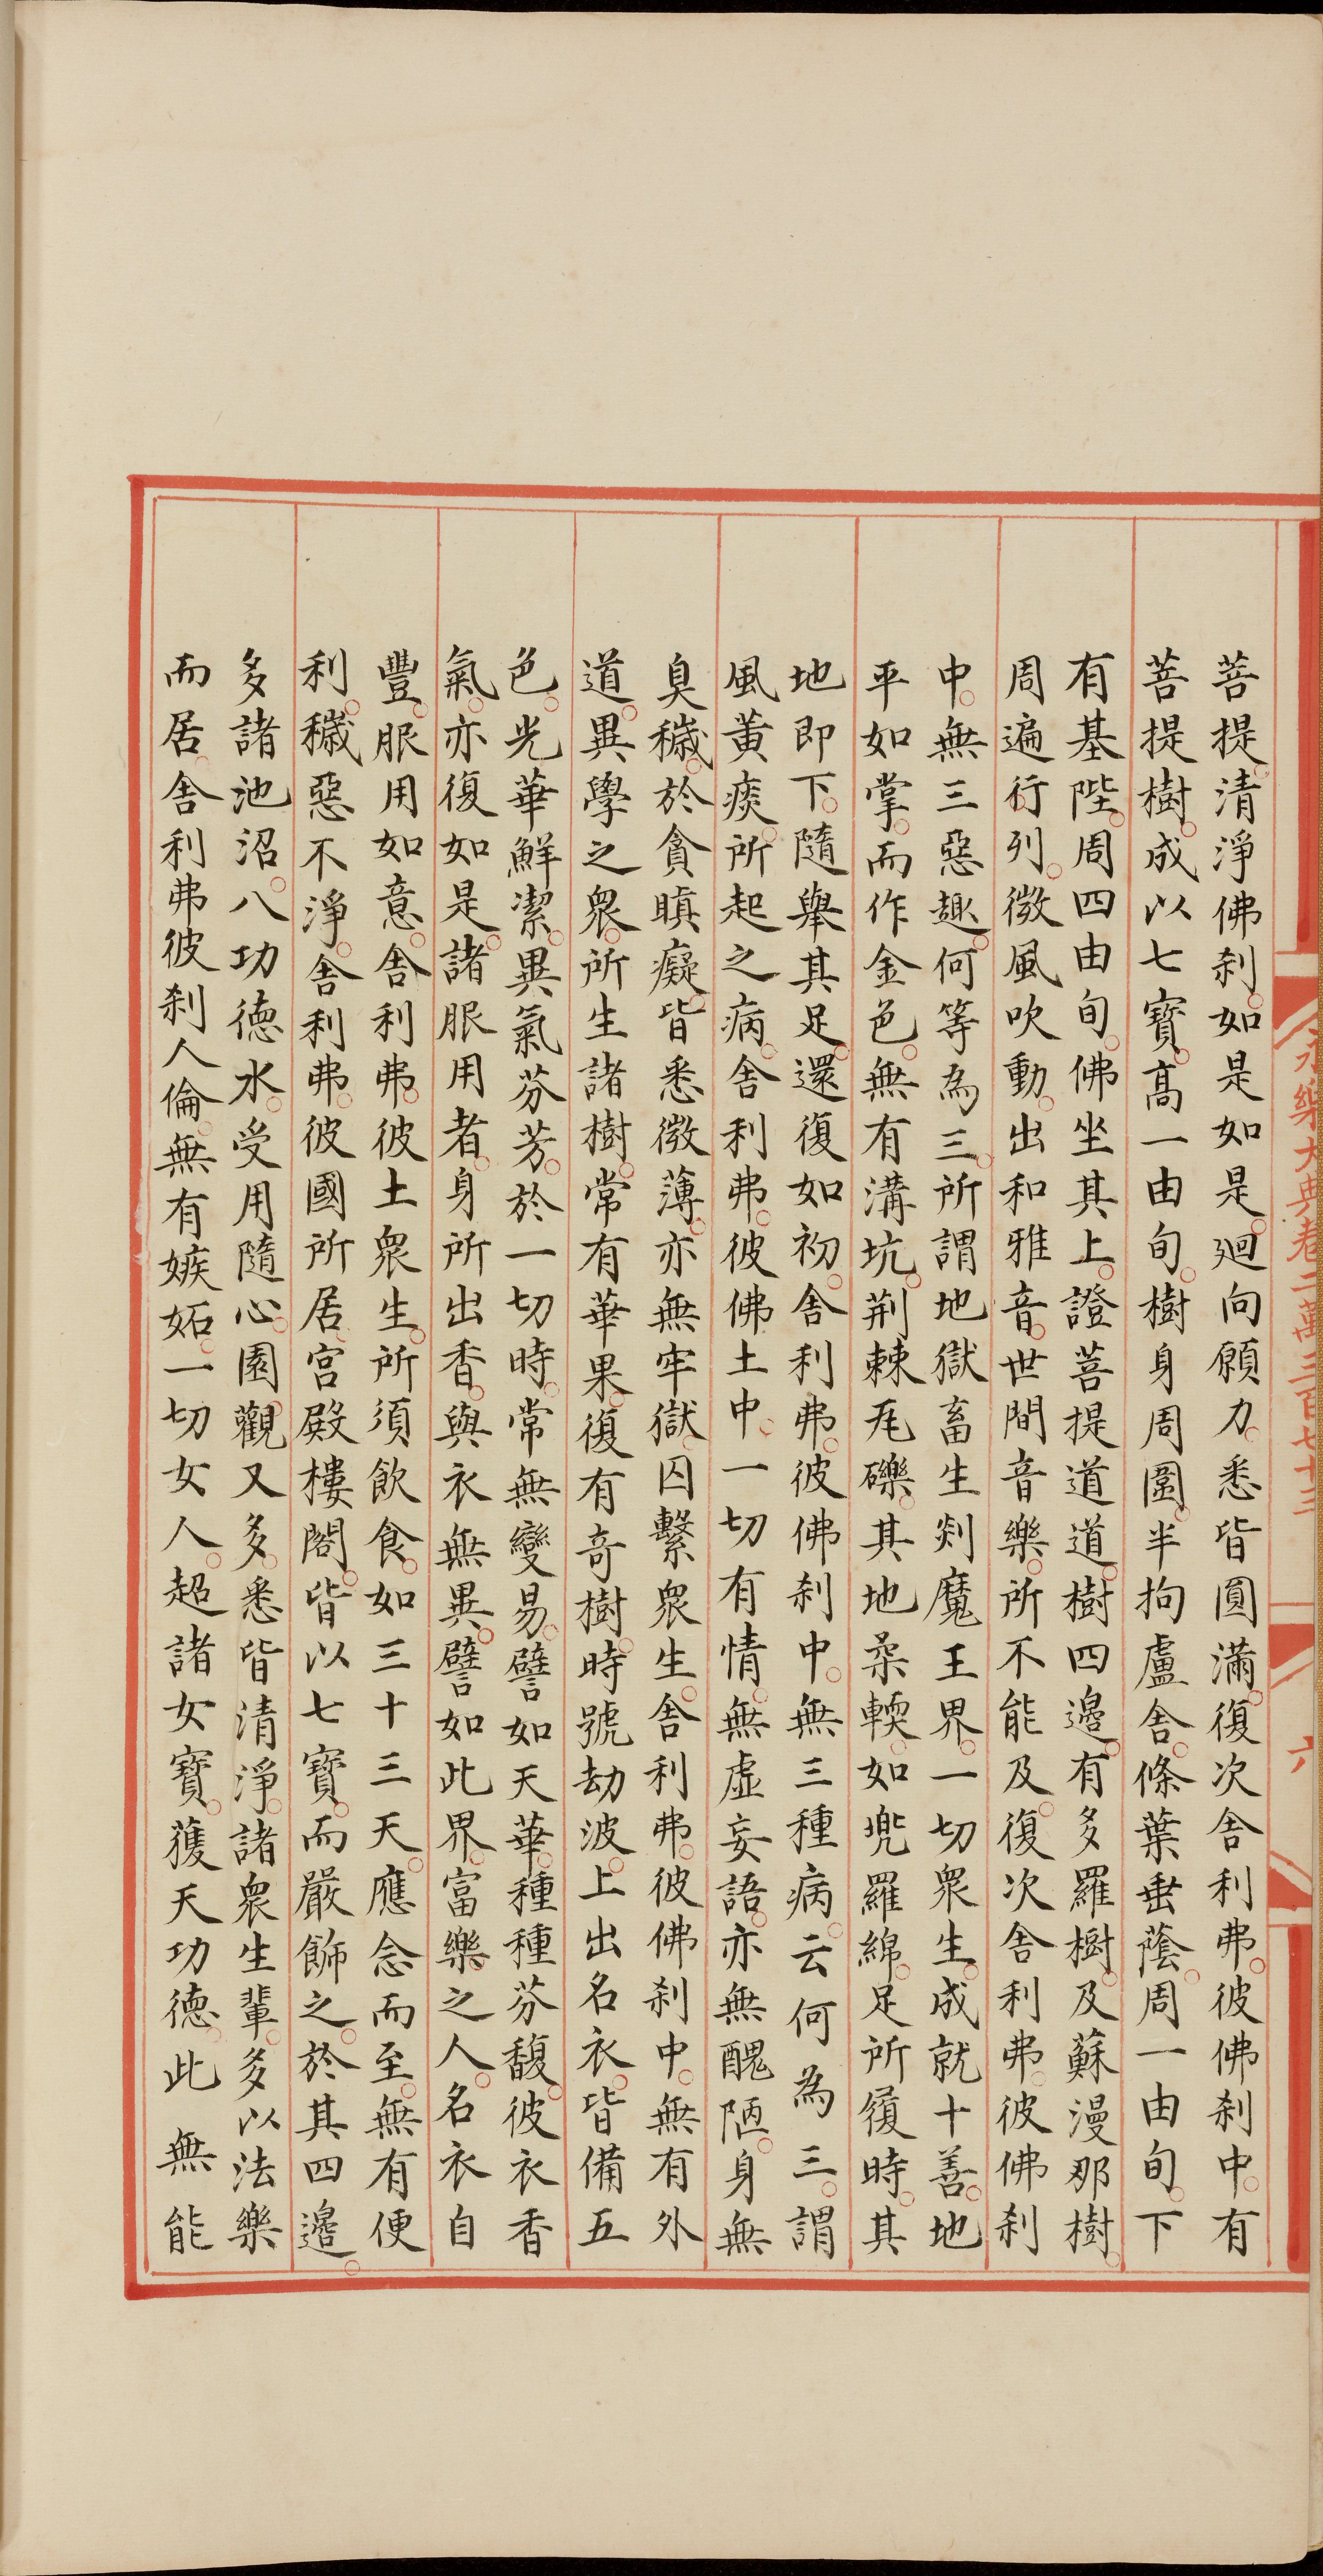 菩提。清淨佛剎。如是如是。廻向願力。悉皆圓滿。復次舍利弗。彼佛剎中。有
菩提樹。成以七寶。高一由旬。樹身周圍。半拘盧舍。條葉垂蔭。周一由旬。下
有基陛。周四由旬。佛坐其上。證菩提道。道樹四邊。有多羅樹。及蘇漫那樹。
周遍行列。微風吹動。出和雅音。世間音樂。所不能及。復次舍利弗。彼佛剎
中。無三惡趣。何等為三。所謂地獄畜生剡魔王界。一切衆生。成就十善。地
平如掌。而作金色。無有溝坑。荆棘瓦礫。其地柔輭。如兠羅綿。足所履時。其
地即下。隨舉其足。還復如初。舍利弗。彼佛剎中。無三種病。云何為三。謂
風黃痰。所起之病。舍利弗。彼佛土中。一切有情。無虛妄語。亦無醜陋。身無
臭穢。於貪瞋癡。皆悉微薄。亦無牢獄。囚繫衆生。舍利弗。彼佛剎中。無有外
道。異學之衆。所生諸樹。常有華果。復有奇樹。時號劫波。上出名衣。皆備五
色。光華鮮潔。異氣芬芳。於一切時。常無變易。譬如天華。種種芬馥。彼衣香
氣。亦復如是。諸服用者。身所出香。與衣無異。譬如此界。富樂之人。名衣自
豐。服用如意。舍利弗。彼土衆生。所須飲食。如三十三天。應念而至。無有便
利。穢惡不淨。舍利弗。彼國所居。宮殿樓閣。皆以七寶。而嚴飾之。於其四邊。
多諸池沼。八功德水。受用隨心。園觀又多。悉皆清淨。諸衆生輩。多以法樂
而居。舍利弗彼剎人倫。無有嫉妬。一切女人。超諸女寶。獲天功德。此無能
永樂大典卷二萬三百七十三
六